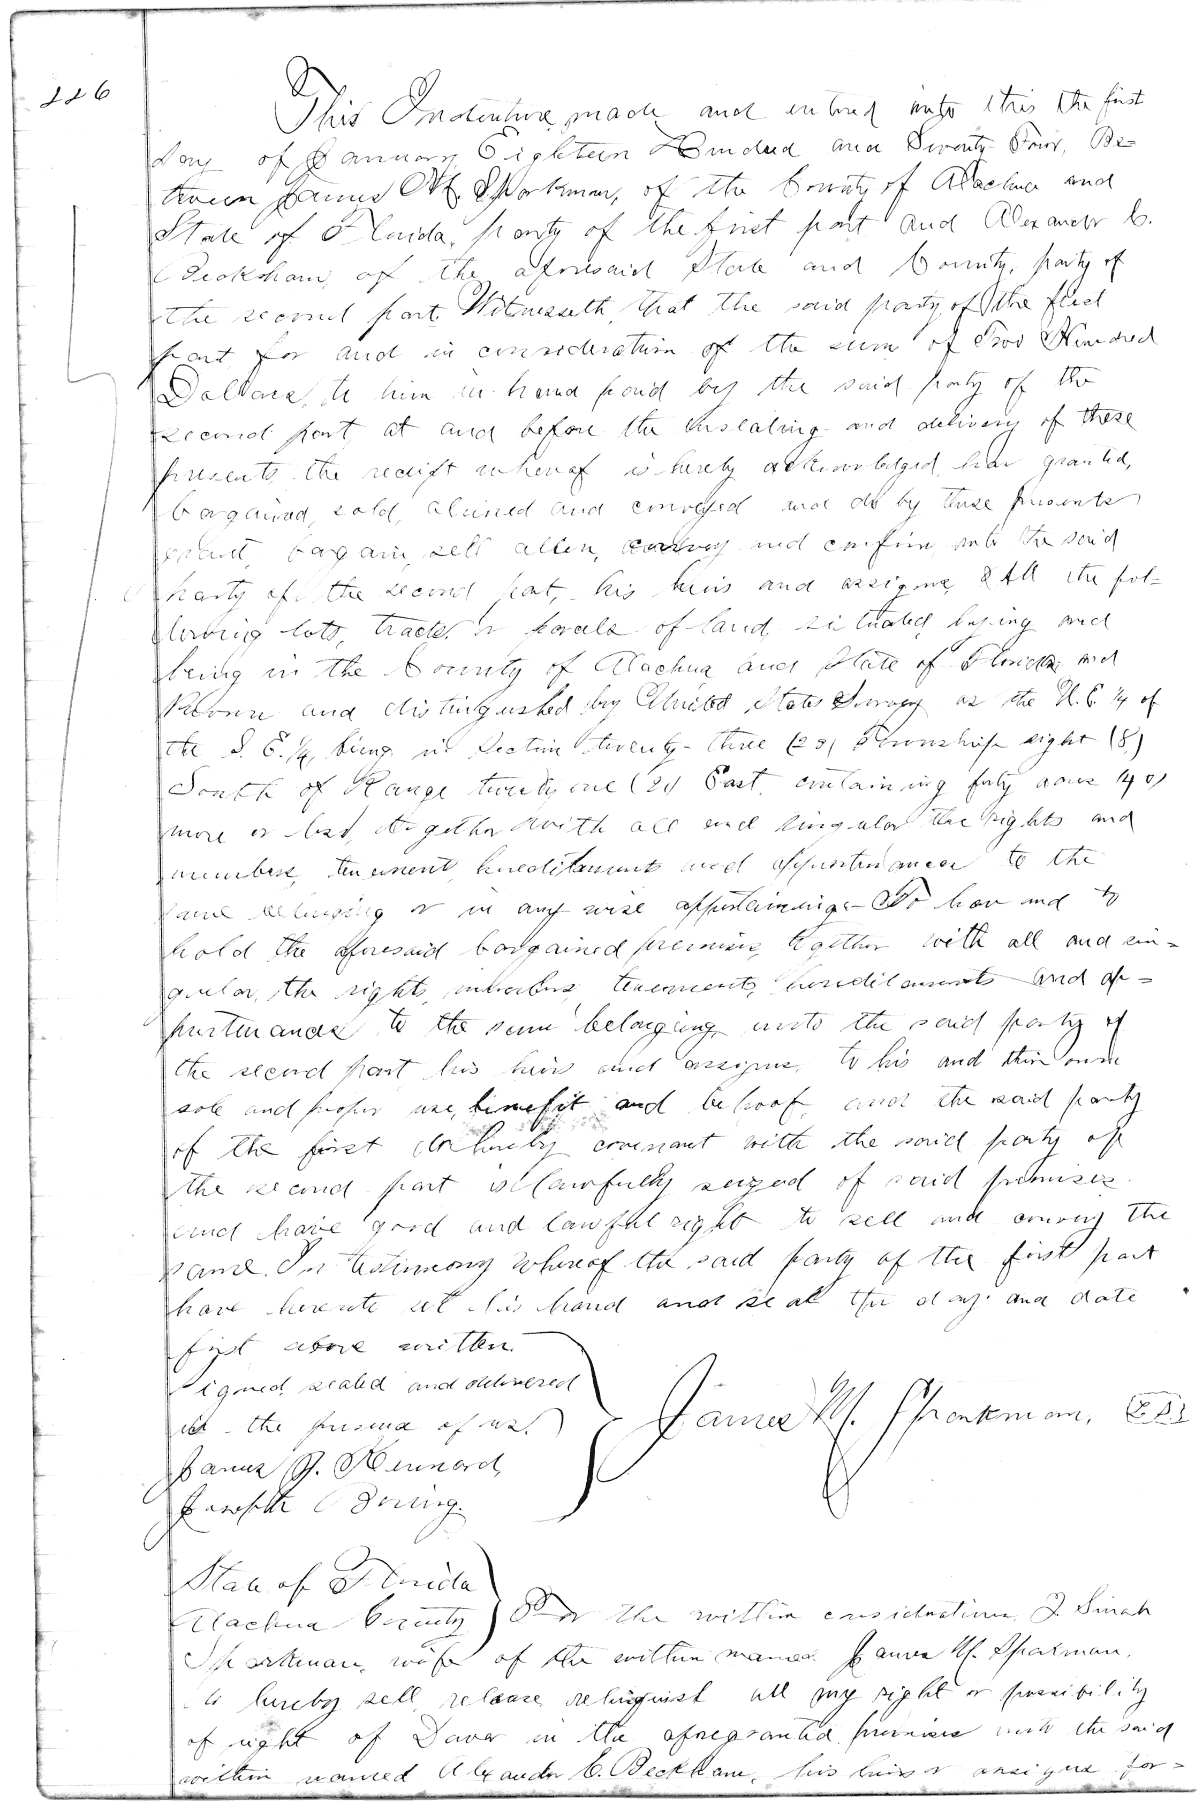 226
This Indenture, made and entered into this the first
day of January, Eighteen Hundred and Seventy Four, Be=
tween James M. Sparkman, of the County of Alachua and
State of Florida, party of the first part and Alexander C.
Beckham, of the aforesaid State and County, party of
the second part, Witnesseth, that the said party of the first
part, for and in consideration of the sum of Two Hundred
Dollars, to him in hand paid by the said party of the
second part, at and before the ensealing and delivery of these
presents, the receipt whereof is hereby acknowledged, has granted,
bargained, sold, aliened and conveyed and do by these presents
grant, bargain, sell, alien, convey and confirm unto the said
party of the second part, his heirs and assigns, All the fol=
lowing lots, tracts or parcels of land, situated, lying and
being in the County of Alachua and State of Florida and
Known and distinguished by United States Survey as the N. E. 1/4 of
the S. E. 1/4, being in Section twenty-three (23) Township eight (8)
South of Range twenty one (21) East, containing forty acres (40)
more or less, together with all and singular the rights and
members, tenement, hereditaments and appurtenances to the
same belonging or in any wise appertaining. To have and to
hold the aforesaid bargained premises, together with all and sin=
gular, the rights, members, tenements, hereditaments and ap=
purtenances to the same belonging, unto the said party of
the second part his heirs and assigns, to his and their own
sole and proper use, benefit and behoof, and the said party
of the first do hereby covenant with the said party of
the second part is lawfully seized of said premises
and have good and lawful right to sell and convey the
same. In testimony whereof the said party of the first part
have hereunto set his hand and seal the day and date
first above written.
Signed, sealed and delivered
in the presence of us.
James M. Sparkman,
James J. Kennard,
Joseph Boring.
State of Florida
Alachua County
For the within consideration, I Sinah
Sparkman, wife of the within named James M. Sparkman,
do hereby sell, release, relinquish all my right or possibility
of right of Dower in the aforegranted premises unto the said
within named Alexander C. Beckham, his heirs or assigns for=